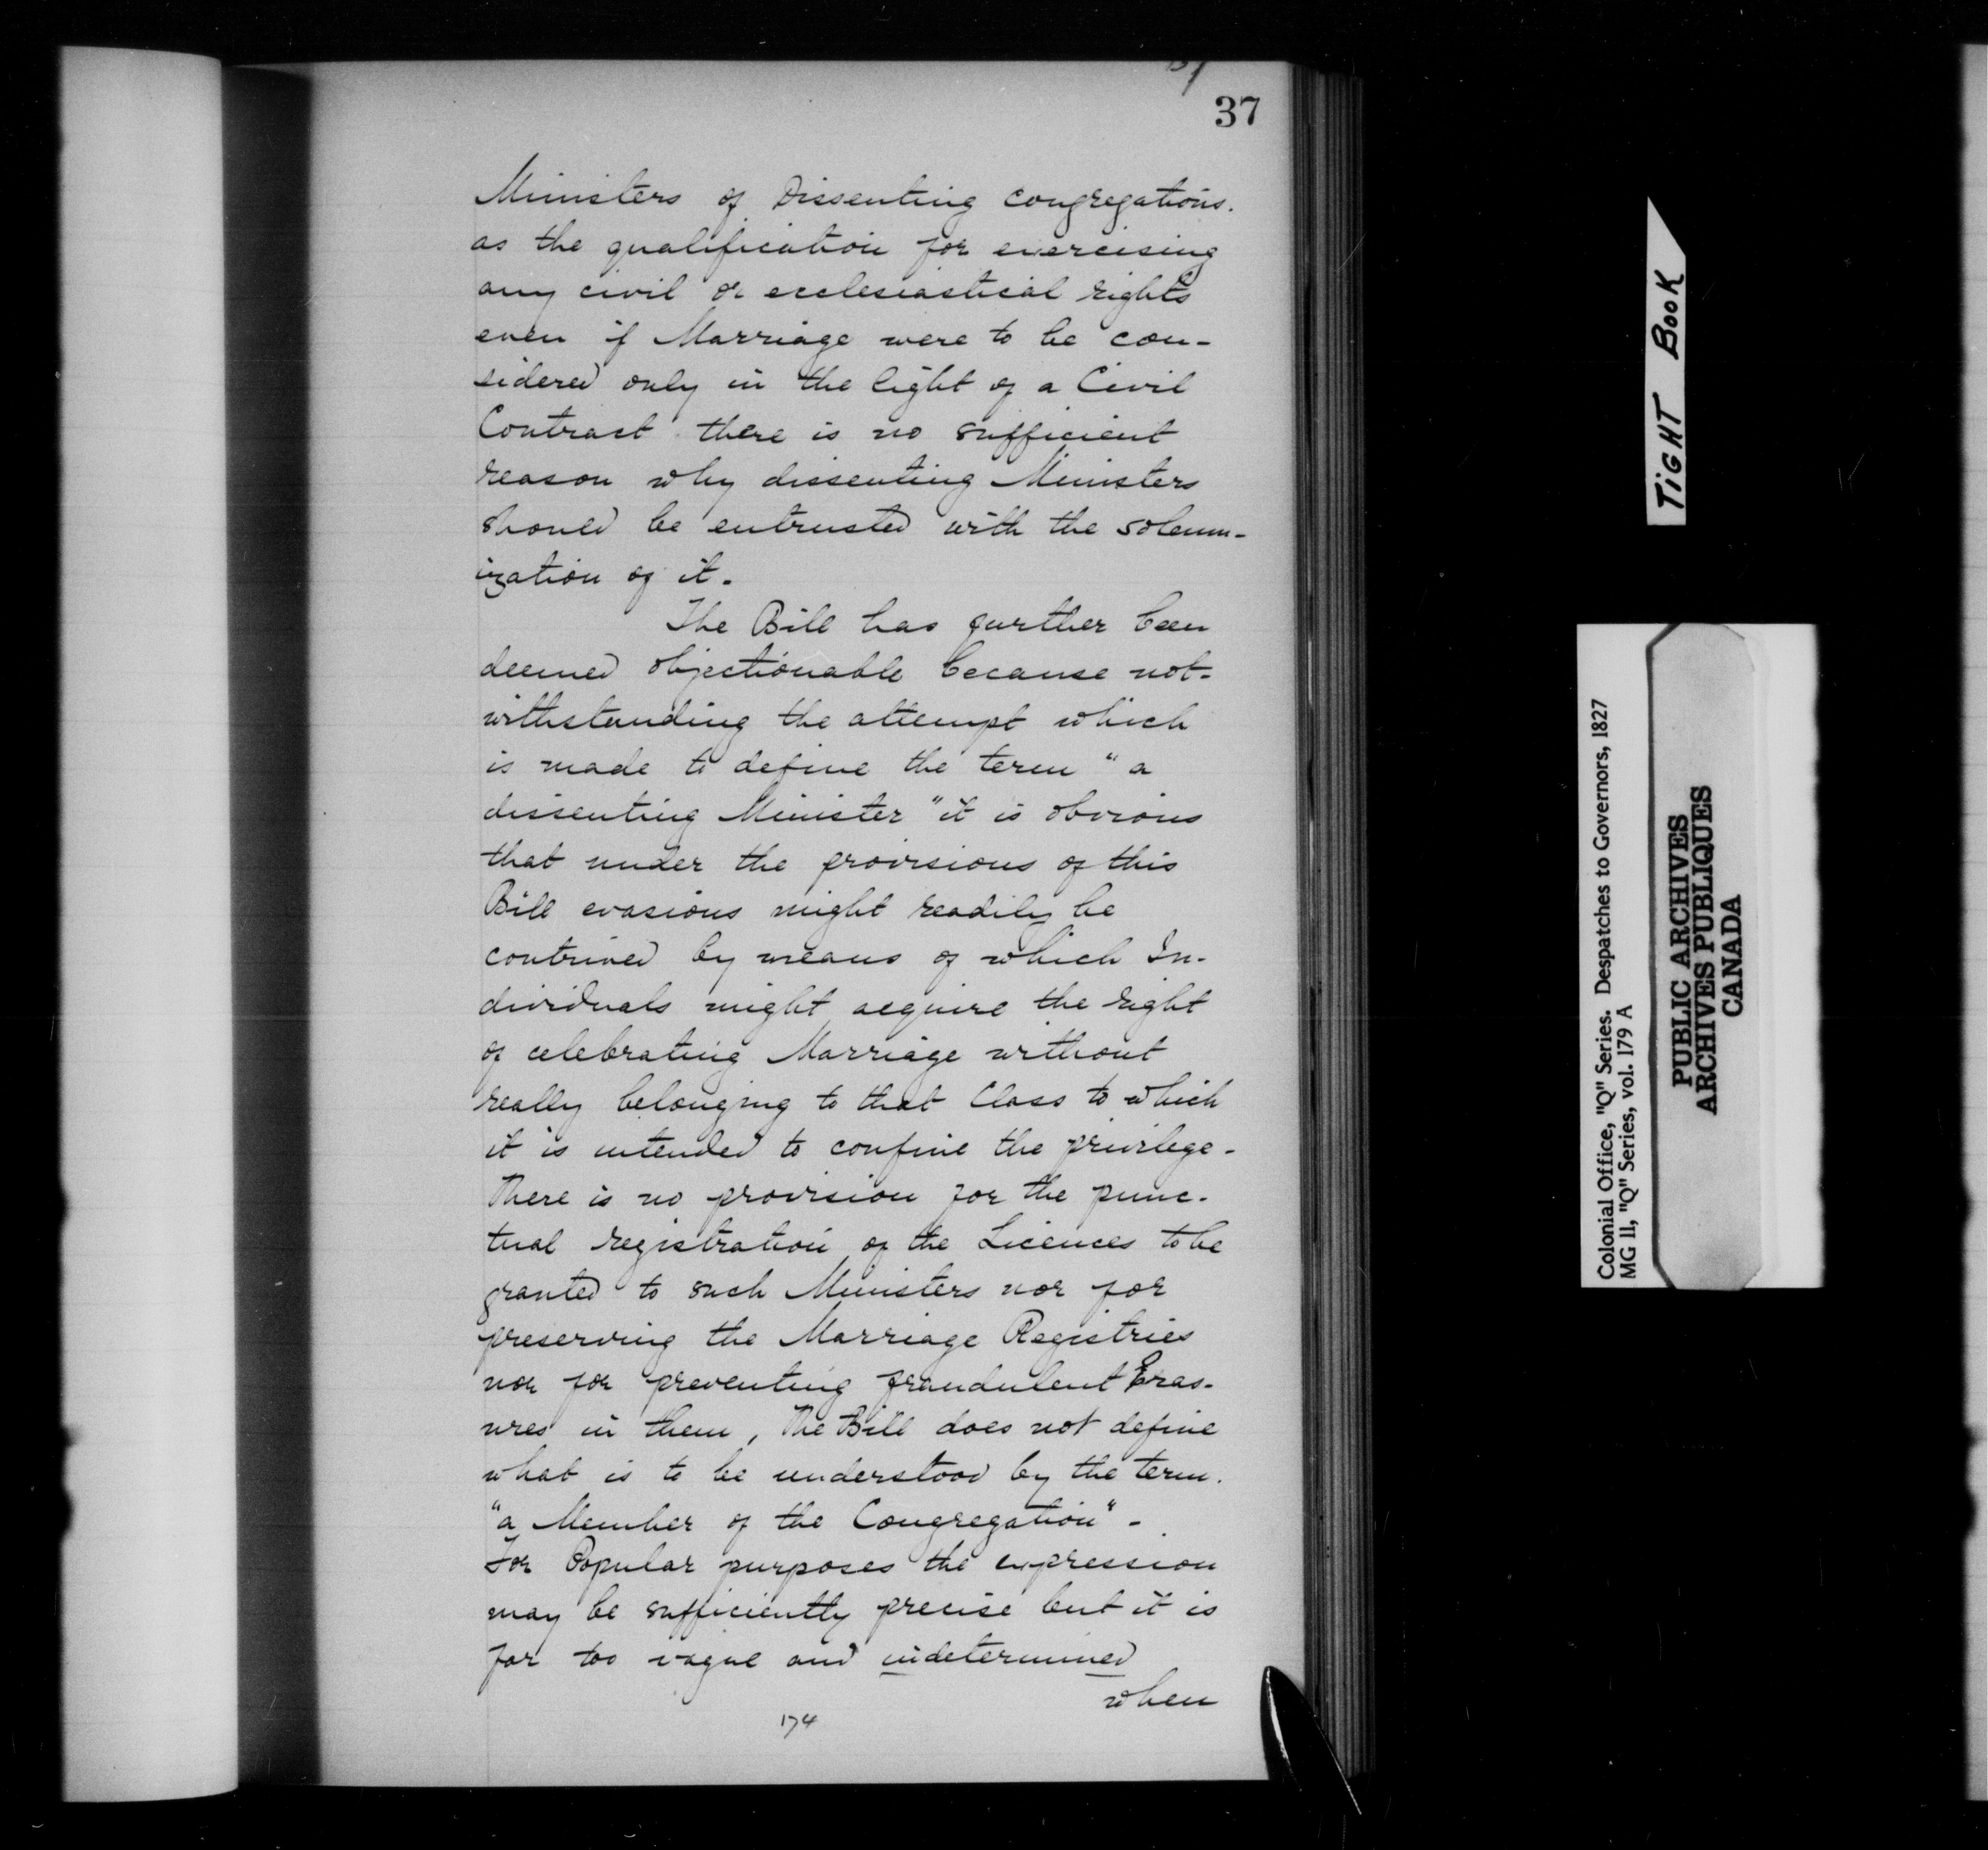 37
Ministers of Dissenting congregations.
as the qualification for exercising
any civil or ecclesiastical rights
even if Marriage were to be con-
sidered only in the light of a Civil
Contract there is no sufficient
reason why dissenting Ministers
should be entrusted with the solemn-
ization of it.
The Bill has further been
deemed objectionable because not-
withstanding the attempt which
is made to define the term "a
dissenting Minister" it is obvious
that under the provisions of this
Bill evasions might readily be
contrived by means of which In-
dividuals might acquire the right
of celebrating Marriage without
really belonging to that Class to which
it is intended to confine the privilege.
There is no provision for the punc-
tual registration of the Licences to be
granted to such Ministers nor for
preserving the Marriage Registries
nor for preventing fraudulent Eras-
ures in them, The Bill does not define
what is to be understood by the term.
"a Member of the Congregation" -
For Popular purposes the expression
may be sufficiently precise but it is
far too vague and indetermined
when
174
TiGHT BooK
Colonial Office, "Q" Series. Despatches to Governors, 1827
MG 11, "Q" Series, vol. 179 A
PUBLIC ARCHIVES
ARCHIVES PUBLIQUES
CANADA